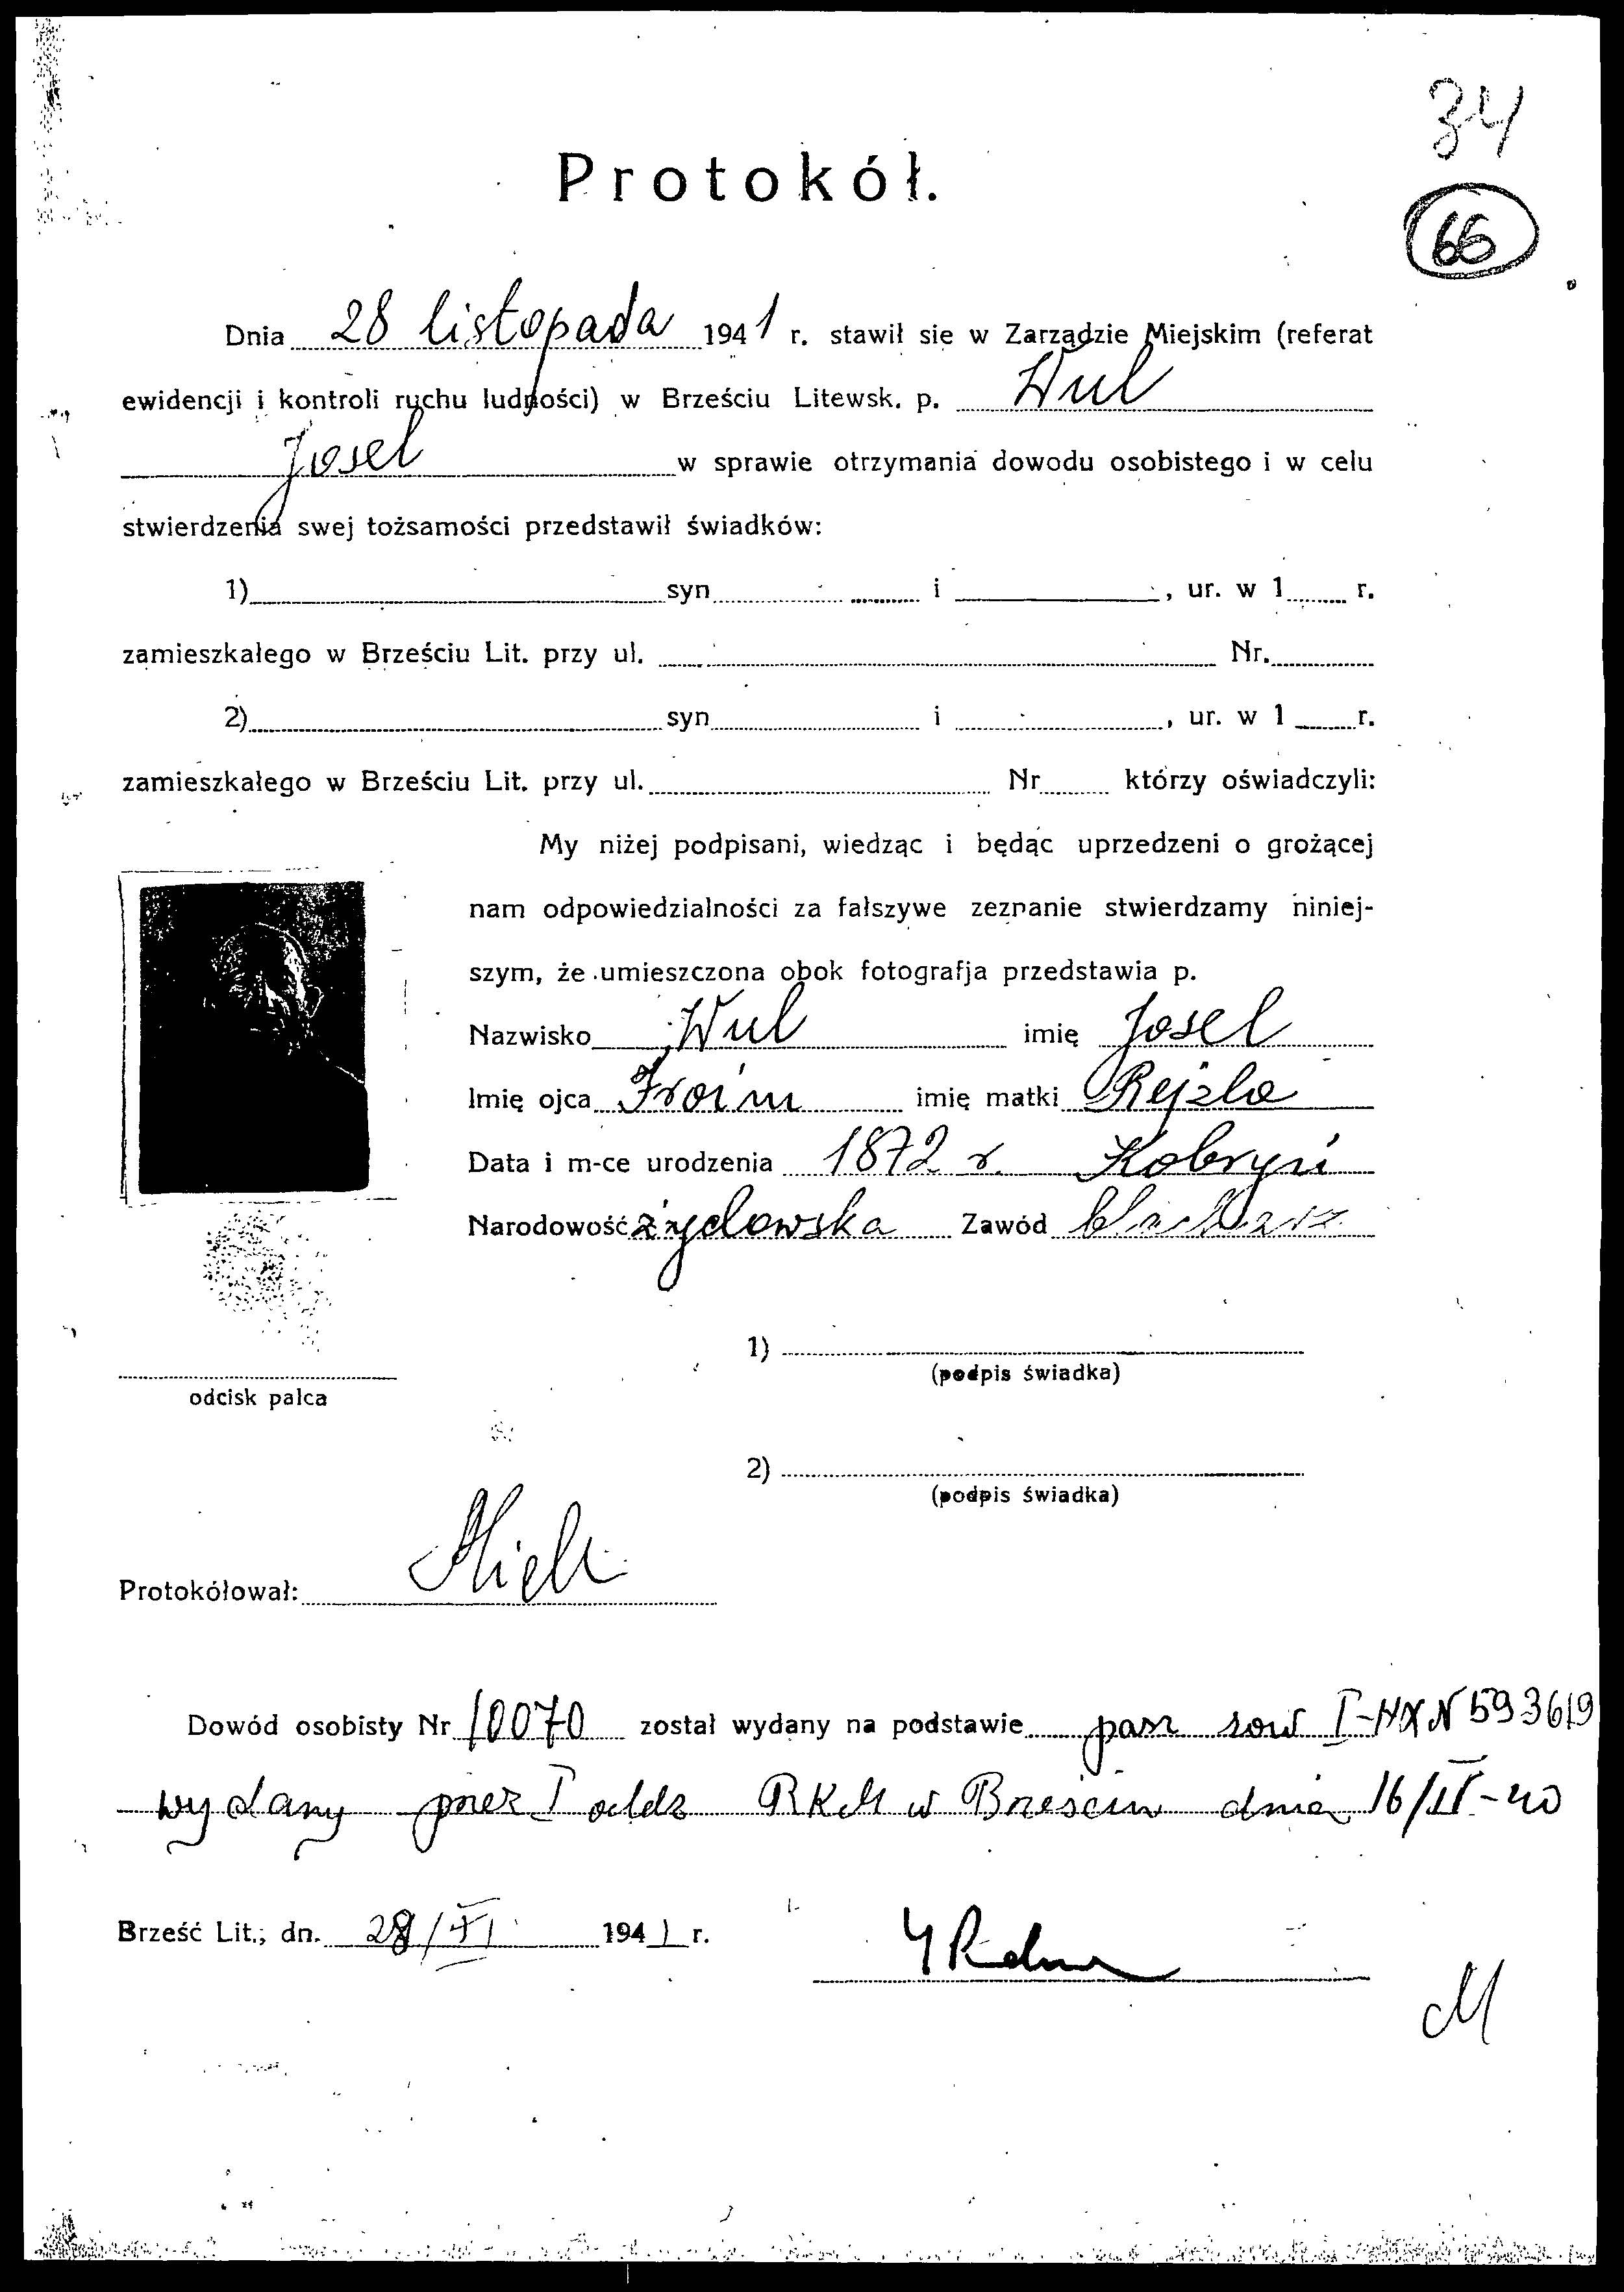 34
Protokół.
66
Dnia 28 listopada 1941 r. stawił się w Zarządzie Miejskim (referat
ewidencji i kontroli ruchu ludności) w Brześciu Litewsk. p. Wul
Josel w sprawie otrzymania dowodu osobistego i w celu
stwierdzenia swej tożsamości przedstawił świadków:
1) syn i , ur. w 1 r.
zamieszkałego w Brześciu Lit. przy ul. Nr.
2) syn i , ur. w 1 r.
zamieszkałego w Brześciu Lit. przy ul. Nr którzy oświadczyli:
My niżej podpisani, wiedząc i będąc uprzedzeni o grożącej
nam odpowiedzialności za fałszywe zeznanie stwierdzamy niniej-
szym, że umieszczona obok fotografja przedstawia p.
Nazwisko Wul imię Josel
Imię ojca Froim imię matki Rejzla
Data i m-ce urodzenia 1872 r. Kobryń
Narodowość żydowska Zawód blacharz
1)
(podpis świadka)
odcisk palca
2)
(podpis świadka)
Protokółował:
Dowód osobisty Nr 10070 został wydany na podstawie pasz sow I-HX N 593619
wydany przez I oddz RKM w Brześciu dnia 16/II-40
Brześć Lit., dn. 28/XI 1941 r.
M